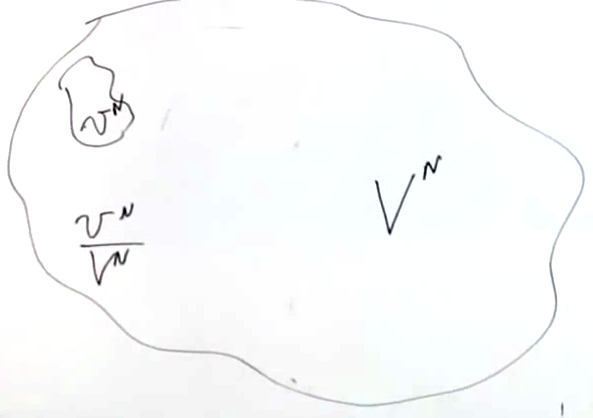 v^N
V^N
v^N
V^N